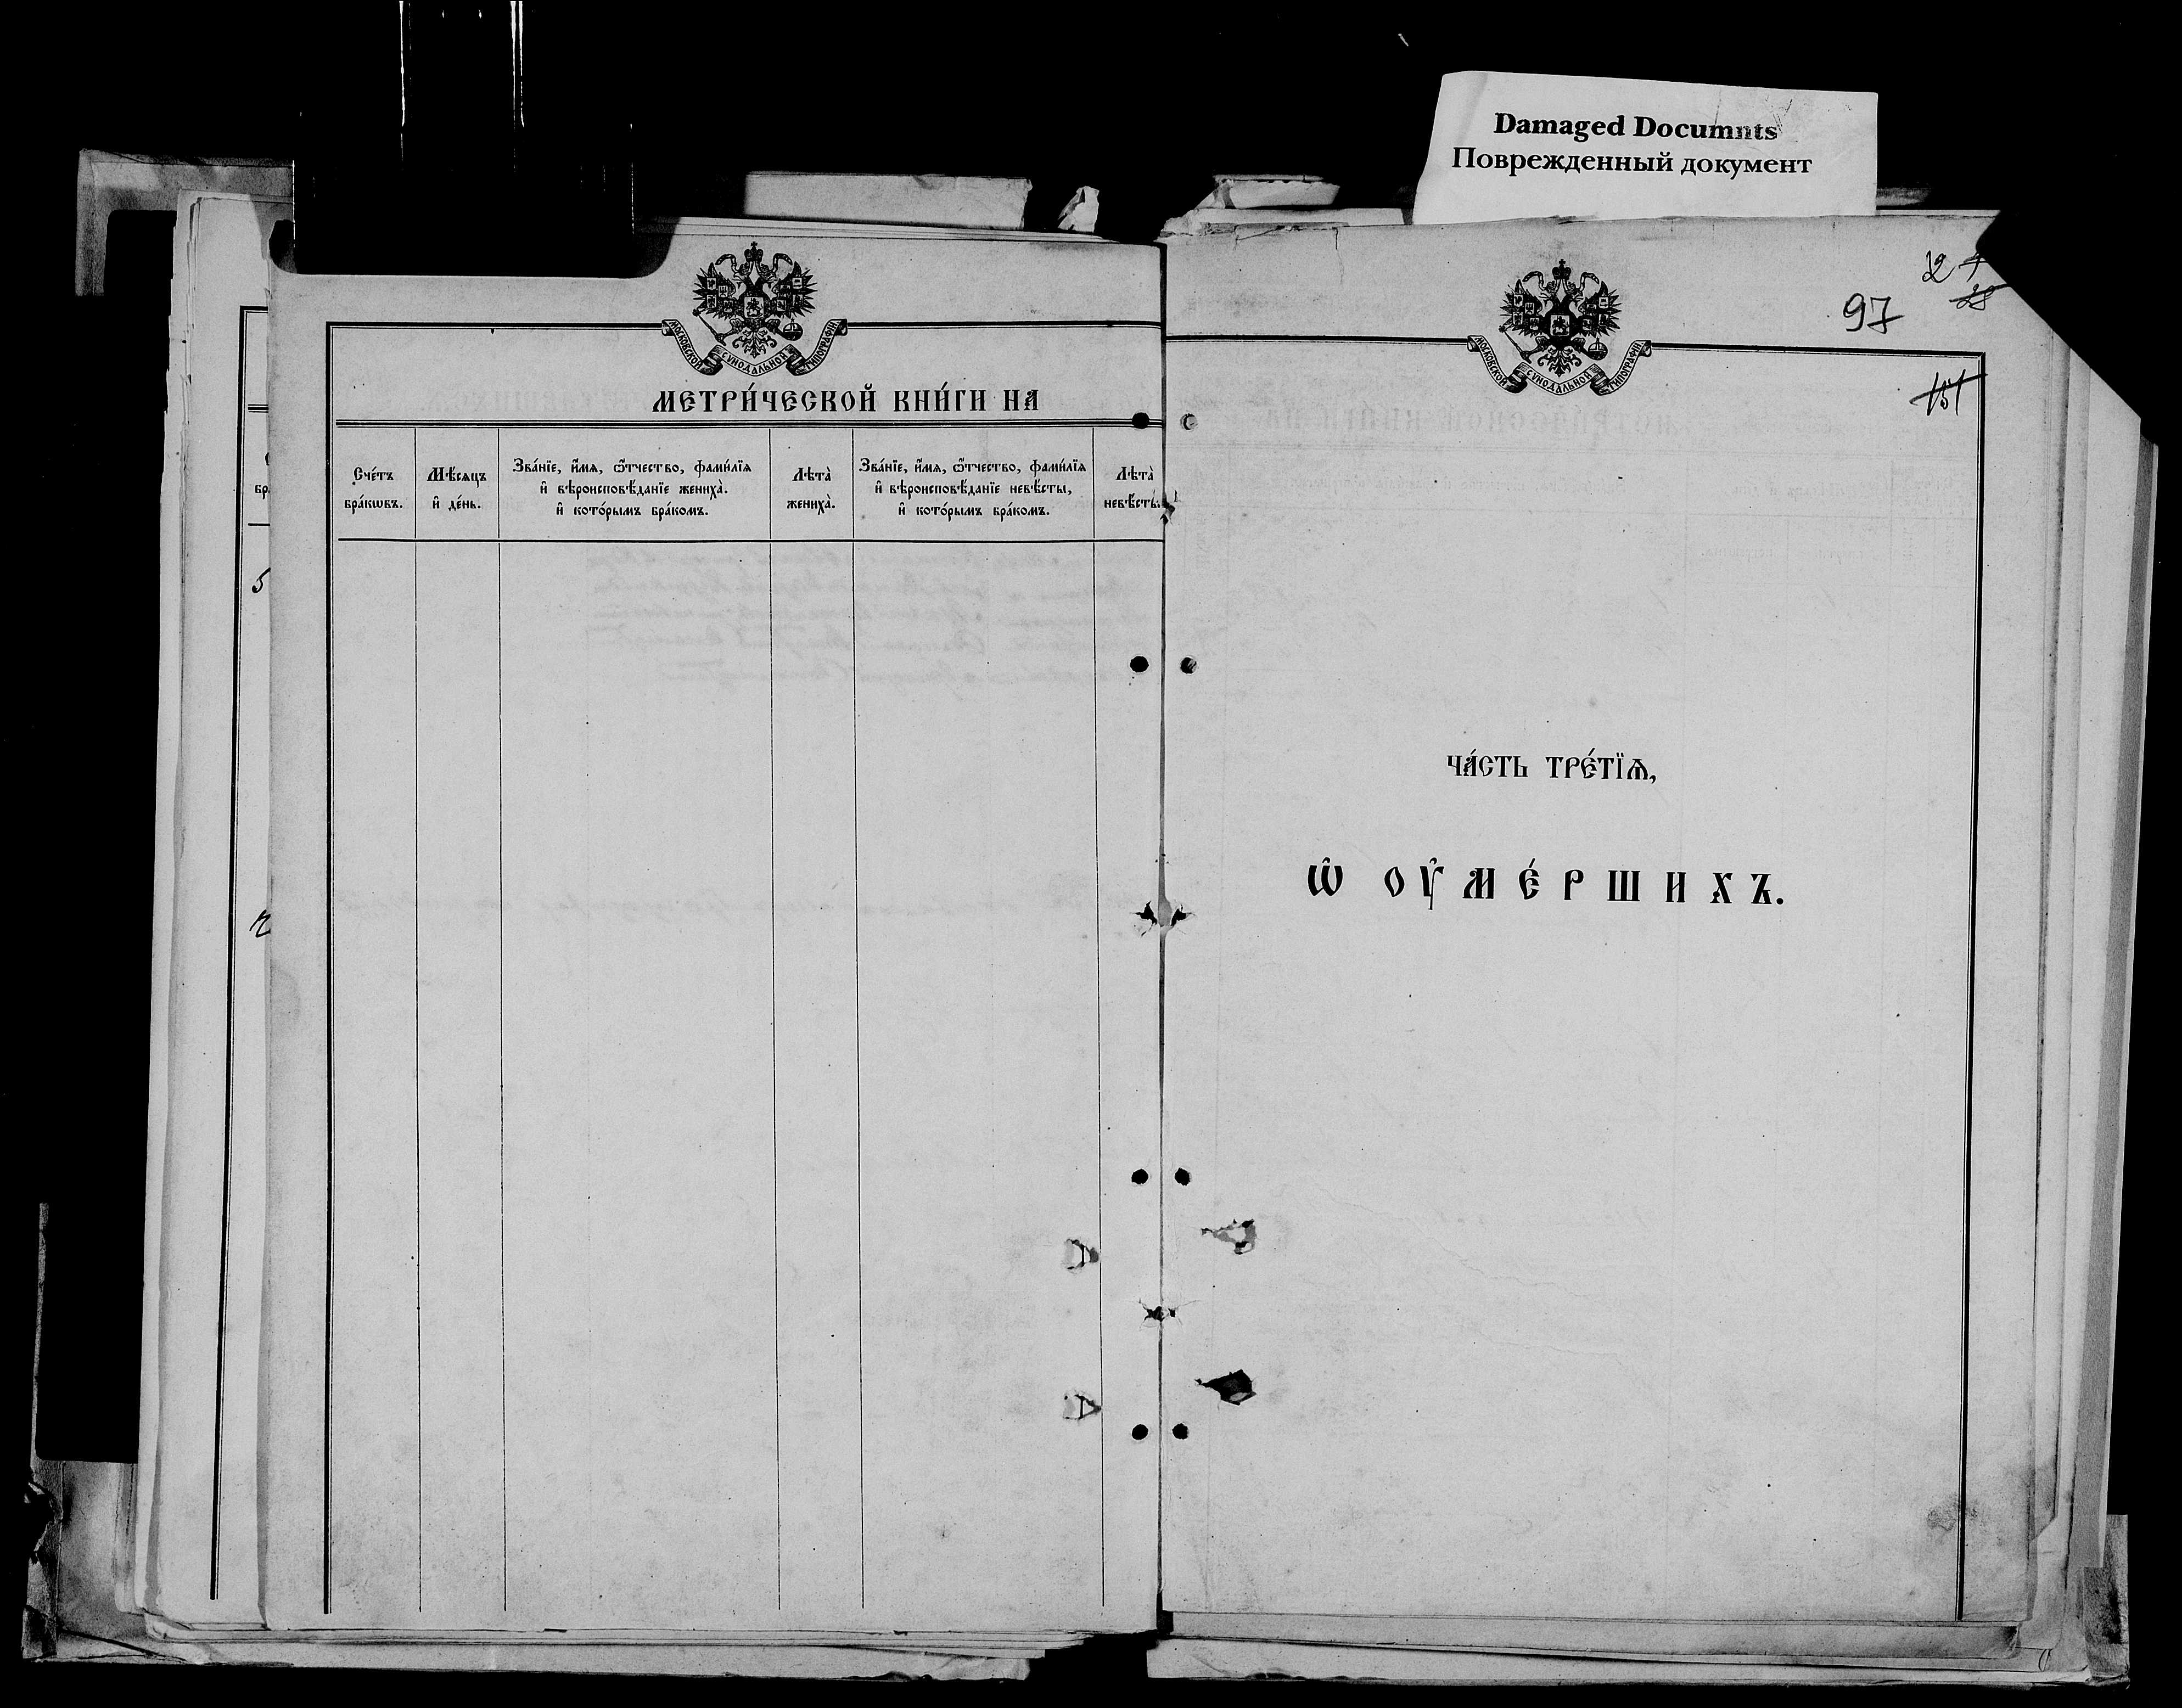 Damaged Documnts
Поврежденный документ
МОСКОВСКОЙ СѴНОДАЛЬНОЙ ТИПОГРАФІИ
МЕТРИ́ЧЕСКОЙ КНИ́ГИ НА
Сче́тъ бра́кѡвъ.
Мѣ́сѧцъ и҆ де́нь.
Зва́нїе, и҆́мѧ, ѻ҆́тчество, фамı́лїѧ
и҆ вѣроисповѣ́данїе женихà.
и҆ кото́рымъ бра́комъ.
Лѣтà женихà.
Зва́нїе, и҆́мѧ, ѻ҆́тчество, фамı́лїѧ
и҆ вѣроисповѣ́данїе невѣ́сты,
и҆ кото́рымъ бра́комъ.
Лѣтà невѣ́сты.
5
МОСКОВСКОЙ СѴНОДАЛЬНОЙ ТИПОГРАФІИ
97
28
151
ЧА́СТЬ ТРЕ́ТЇѦ,
Ѡ҆ ОУ҆МЕ́РШИХЪ.